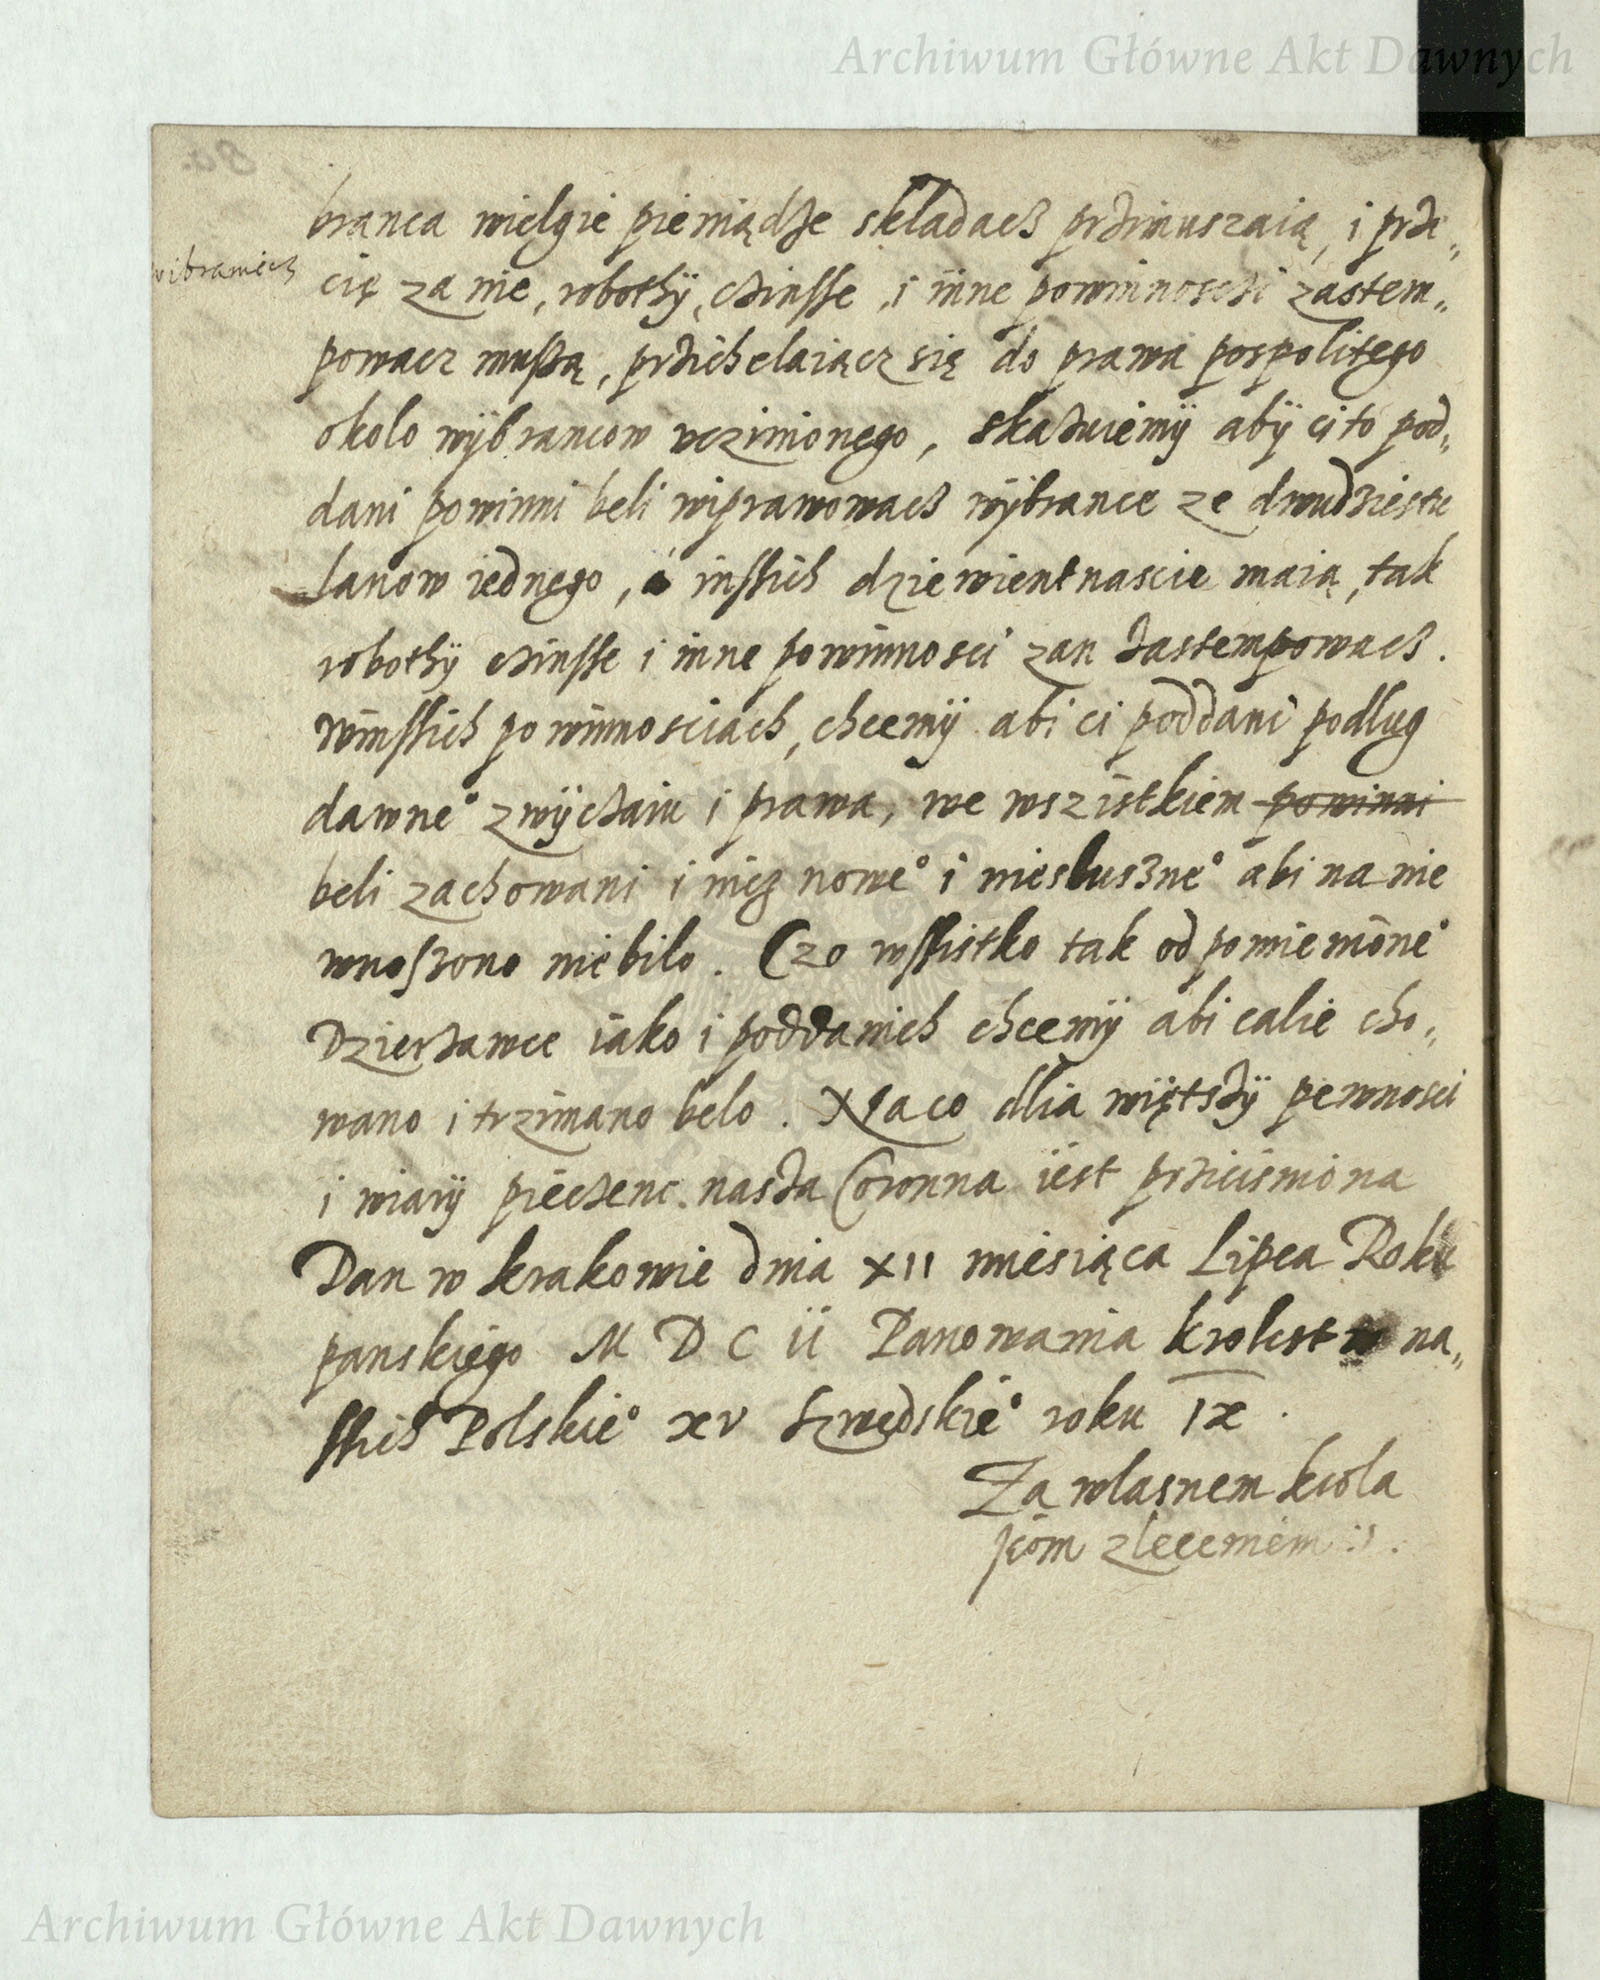 Archiwum Główne Akt Dawnych
branca wielgie pieniądze skladacz przimuszaią, i prze„
wibraniecz
cię za nie, robothÿ, czinsse, i inne powinnosczi zastem„
powacz muszą, przichelaiącz się do prawa pospolitego
okolo wÿbrancow vczinionego, skazuiemÿ abÿ ci to pod„
dani powinni beli wiprawowacz wÿbrance ze dwudziestu
lanow iednego, a insich dziewientnascie maią, tak
robothÿ czinsse i inne powinnosci zan zastempowacz.
Winssich powinnosciach, chcemÿ abi ci poddani podlug
dawne° zwÿczaiu i prawa, we wszistkiem powinni
beli zachowani i nicz nowe° i niesluszne° abi na nie
wnoszono nie bilo. Czo wssistko tak od pomienione°
Dzierzawce iako i poddanich chcemÿ abi calie cho„
wano i trzimano belo. Na co dlia więtszÿ pewnosci
i wiarÿ pieczenc. nasza Coronna iest przicisniona
Dan w krakowie dnia XII miesiąca Lipca Roku
panskiego M D C II Panowania krolestw na„
ssich Polskie° xv Szwedskie° roku IX.
Za wlasnem krola
jeom zleceniem
Archiwum Główne Akt Dawnych